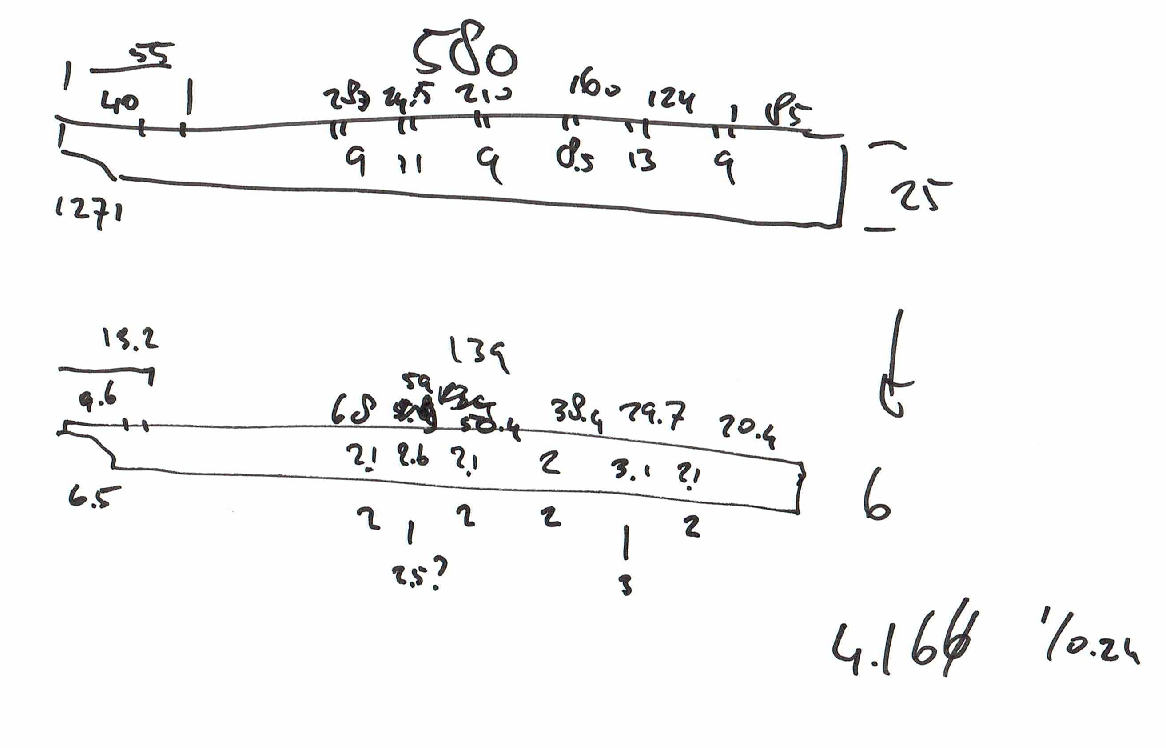 55
580
40
283 24.5 210 160 124 85
9 11 9 8.5 13 9
25
1271
13.2
139
9.6
59
68 50.4 38.4 29.7 20.4
2.1 2.6 2.1 2 3.1 2.1
6.5
6
2 2 2 2
2.5?
3
4.166 1/0.24